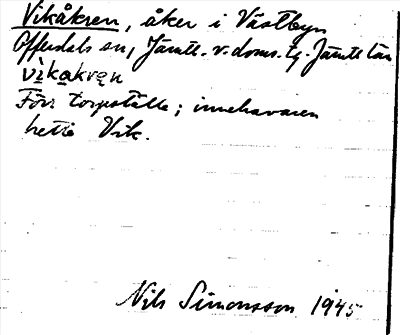 Vikåkren, åker i Västbyn
Offerdals sn, Jämtl. v. doms. tg. Jämtl. län
vìkakręn
Förr torpställe; innehavaren
hette Vik.
Nils Simonsson 1945